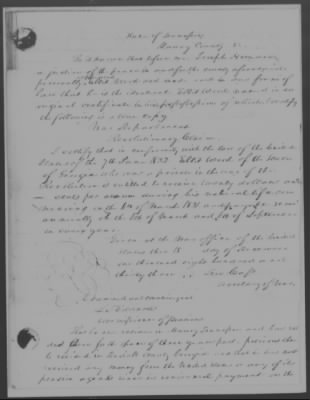 State of Tennessee
Maury County SS
Be it known that before me Joseph
a Justice of the peace in and for the county aforesaid
personally Ellis Wood and made oath in due form of
law that he is the identical Ellis Wood named in an
original certificate in possession of which I certify
the following is a true copy
War Department
Revolutionary Claim
I certify that in conformity with the law of the United
States of the 7th June 1832 Ellis Wood of the State
of Georgia who was a private in the army of the
Revolution is entitled to receive twenty dollars and
cents per annum during his natural life com
mencing on the 4th of March 1831 and payable semi
annually on the 4th of March and 4th of September
in every year
Given at the War office of the United
States this day of
one thousand eight hundred and
thirty three Lew Cass
Secretary of War
Examined and countersigned
J L Edwards
Commissioner of Pensions
That he now resides in Maury Tennessee and has resi
ded there for the space of three years past previous there
to resided in County Georgia and that he has not
received any money from the United States or any of its
pension agents since
payment on the